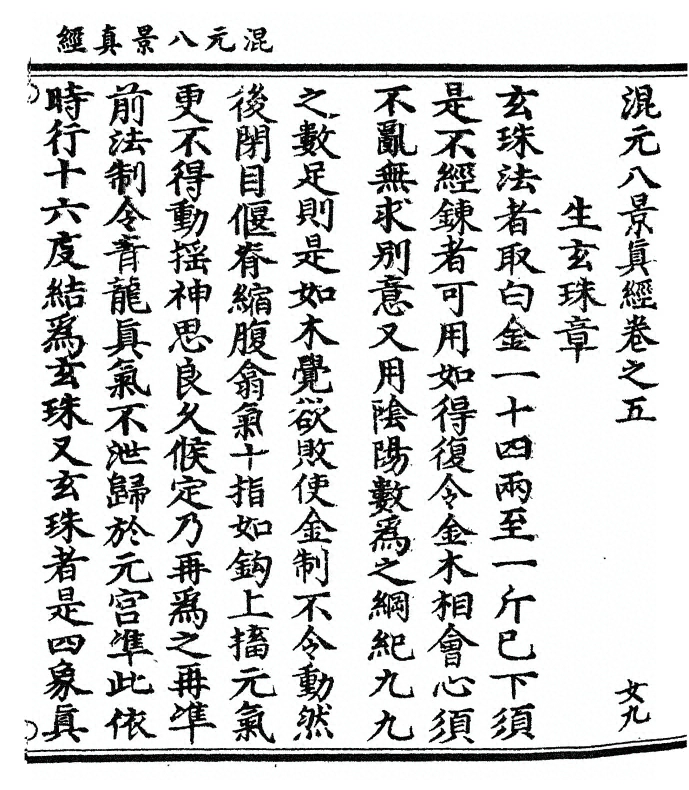 混元八景真經
混元八景眞經卷之五
女九
生玄珠章
玄珠法者取白金一十四兩至一斤已下須
是不經鍊者可用如得復令金木相會心須
不亂無求别意又用陰陽數爲之綱紀九九
之數足則是如木覺欲敗使金制不令動然
後閉目偃脊縮腹翕氣十指如鈎上搐元氣
更不得動揺神思良久候定乃再爲之再準
前法制令青龍眞氣不泄歸於元宫準此依
時行十六度結爲玄珠又玄珠者是四象眞